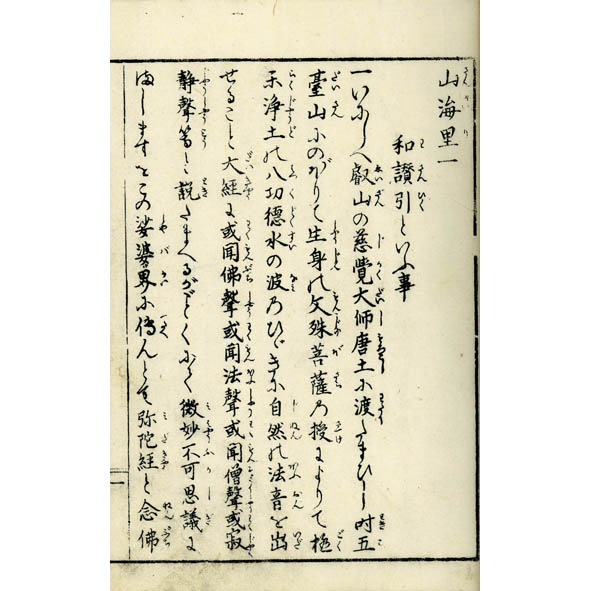 山海里一
和讃引といふ事
一いにしへ叡山の慈覺大師唐土に渡りたまひし時五
臺山にのぼりて生身の文殊菩薩の授によりて極
樂浄土の八功德水の波のひゞきに自然の法音を出
せること大經に或聞佛聲或聞法聲或聞僧聲或寂
静聲等と説たまへるがごとくにて微妙不可思議に
ましますをこの娑婆界に傳んとて弥陀經と念佛